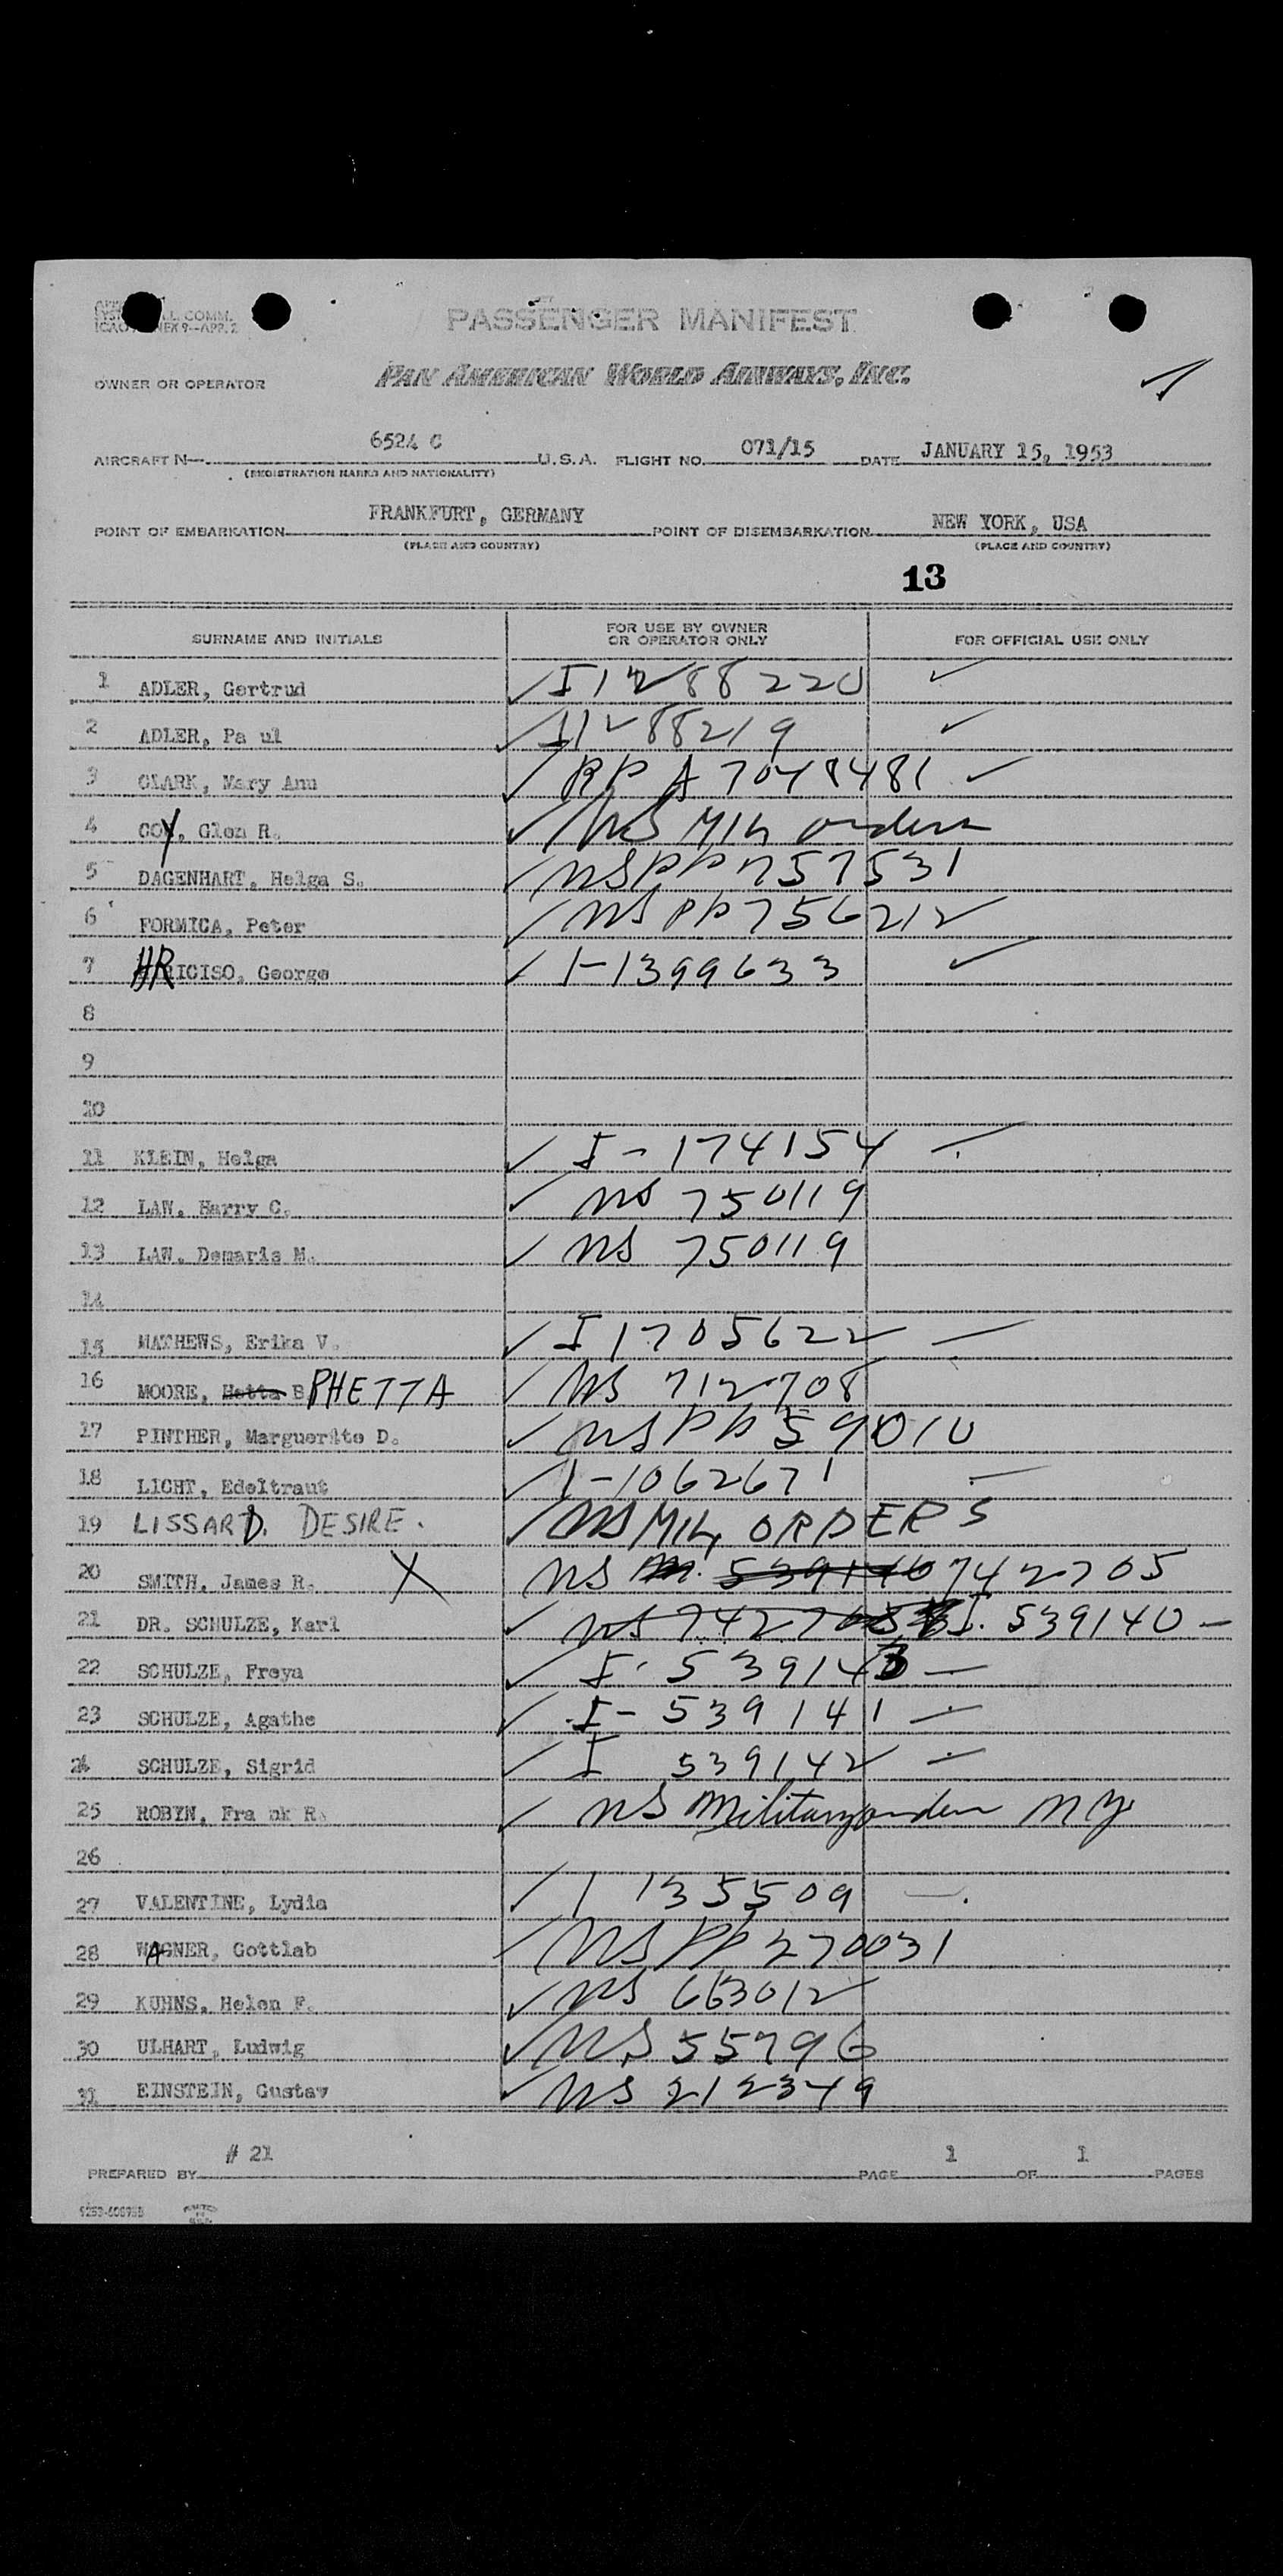 L. COMM.
ICAO ANNEX 9—APP. 2
PASSENGER MANIFEST
OWNER OR OPERATOR PAN AMERICAN WORLD AIRWAYS, INC.
AIRCRAFT N— 6524 C U.S.A. FLIGHT NO. 071/15 DATE JANUARY 15, 1953
(REGISTRATION MARKS AND NATIONALITY)
POINT OF EMBARKATION FRANKFURT, GERMANY POINT OF DISEMBARKATION NEW YORK, USA
(PLACE AND COUNTRY) (PLACE AND COUNTRY)
13
SURNAME AND INITIALS FOR USE BY OWNER OR OPERATOR ONLY FOR OFFICIAL USE ONLY
1 ADLER, Gertrud ✓ I 1288220 ✓
2 ADLER, Pa ul ✓ I1288219 ✓
3 CLARK, Mary Ann ✓ RP A7048481 ✓
4 COY, Glen R. ✓ NS MIL orders
5 DAGENHART, Helga S. ✓ NS PP 757531
6 FORMICA, Peter ✓ NS PP 756212
7 HRICISO, George ✓ I-1399633 ✓
8
9
10
11 KLEIN, Helga ✓ I-174154
12 LAW, Harry C. ✓ NS 750119
13 LAW, Demaris M. ✓ NS 750119
14
15 MATHEWS, Erika V. ✓ I 1705622 —
16 MOORE, Hetta B PHETTA ✓ NS 712708
17 PINTHER, Marguerite D. ✓ NS PP 59010
18 LICHT, Edeltraut ✓ I-1062671 —
19 LISSARD, DESIRE. ✓ NS MIL ORDERS
20 SMITH, James R. X NS 539140 742705
21 DR. SCHULZE, Karl ✓ NS 742705 I. 539140 —
22 SCHULZE, Freya ✓ I- 539143 —
23 SCHULZE, Agathe ✓ I- 539141 —
24 SCHULZE, Sigrid ✓ I 539142 —
25 ROBYN, Fra nk R. ✓ NS Military orders NY
26
27 VALENTINE, Lydia ✓ I 135509 —
28 WAGNER, Gottlab ✓ NS PP 270031
29 KUHNS, Helen F. ✓ NS 663012
30 ULHART, Ludwig ✓ NS 55796
31 EINSTEIN, Gustav ✓ NS 212349
PREPARED BY # 21 PAGE 1 OF 1 PAGES
PRINTED IN U.S.A.